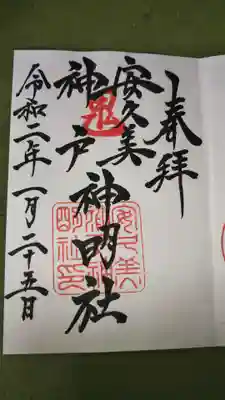 奉拝
安久美
神戸神明社
令和二年一月二十五日
鬼
安久美
神戸神
明社印